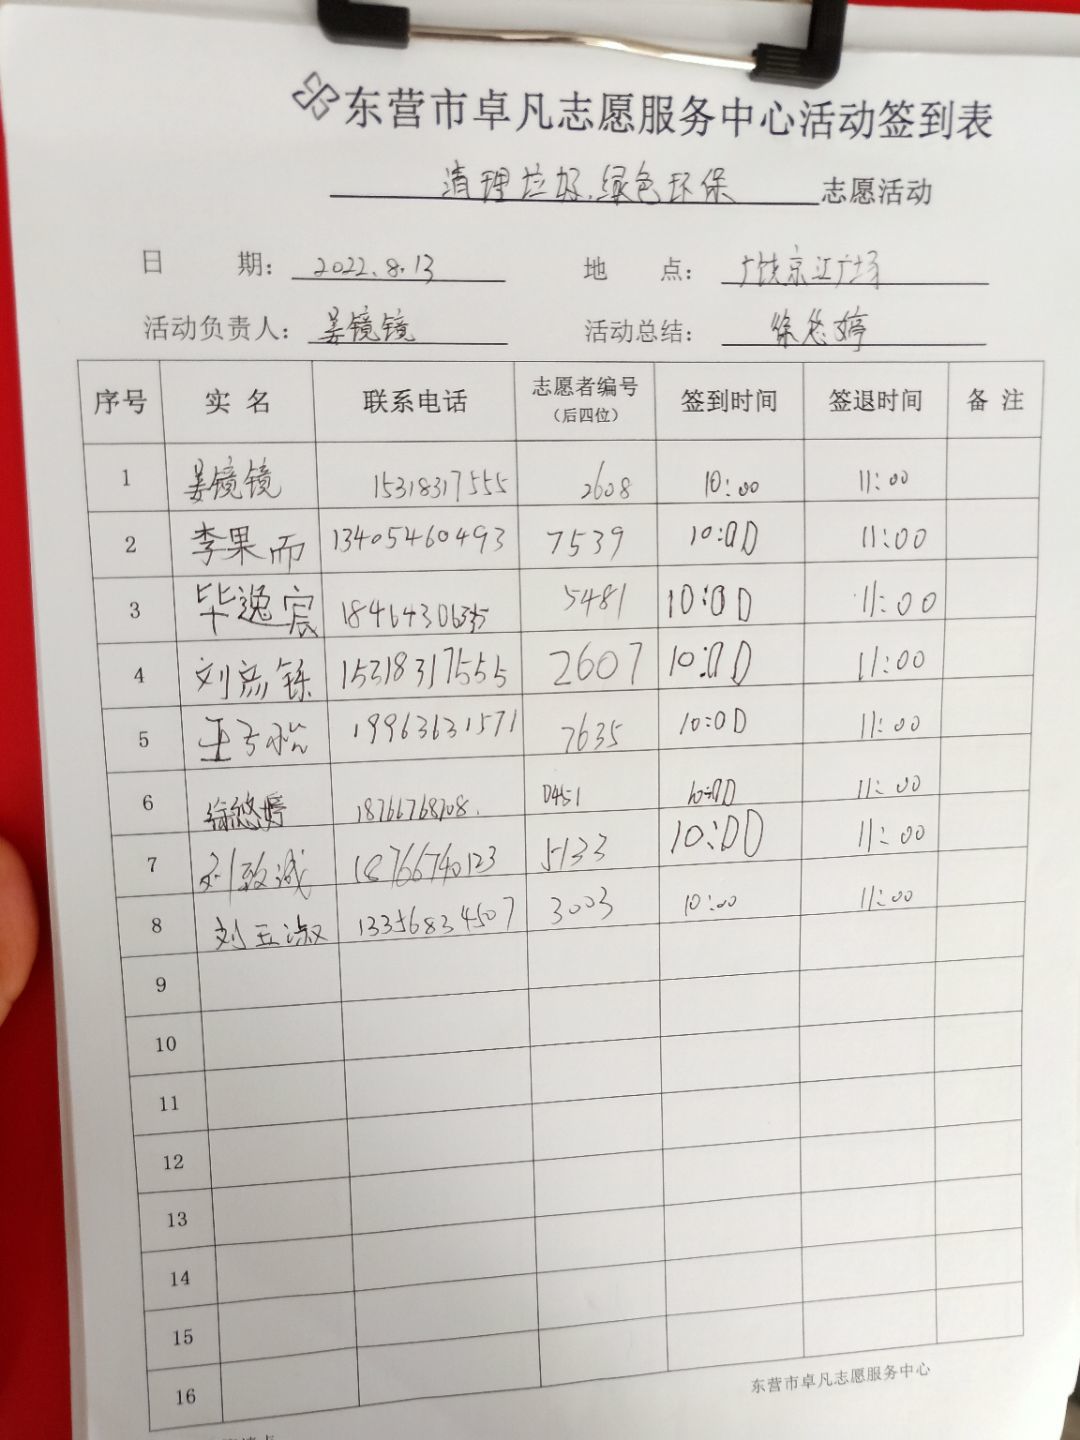 东营市卓凡志愿服务中心活动签到表
清理垃圾.绿色环保 志愿活动
日 期： 2022.8.13 地 点： 广饶京江广场
活动负责人： 姜镜镜 活动总结： 徐悠婷
序号 实 名 联系电话 志愿者编号（后四位） 签到时间 签退时间 备 注
1 姜镜镜 15318317555 2608 10:00 11:00
2 李果而 13405460493 7539 10:00 11:00
3 毕逸宸 5481 10:00 11:00
4 刘彦铄 15318317555 2607 10:00 11:00
5 王子怡 19963631571 7635 10:00 11:00
6 徐悠婷 18766768708. 0451 10:00 11:00
7 刘致诚 18766740123 5133 10:00 11:00
8 刘玉淑 13356834507 3003 10:00 11:00
9
10
11
12
13
14
15
16
东营市卓凡志愿服务中心